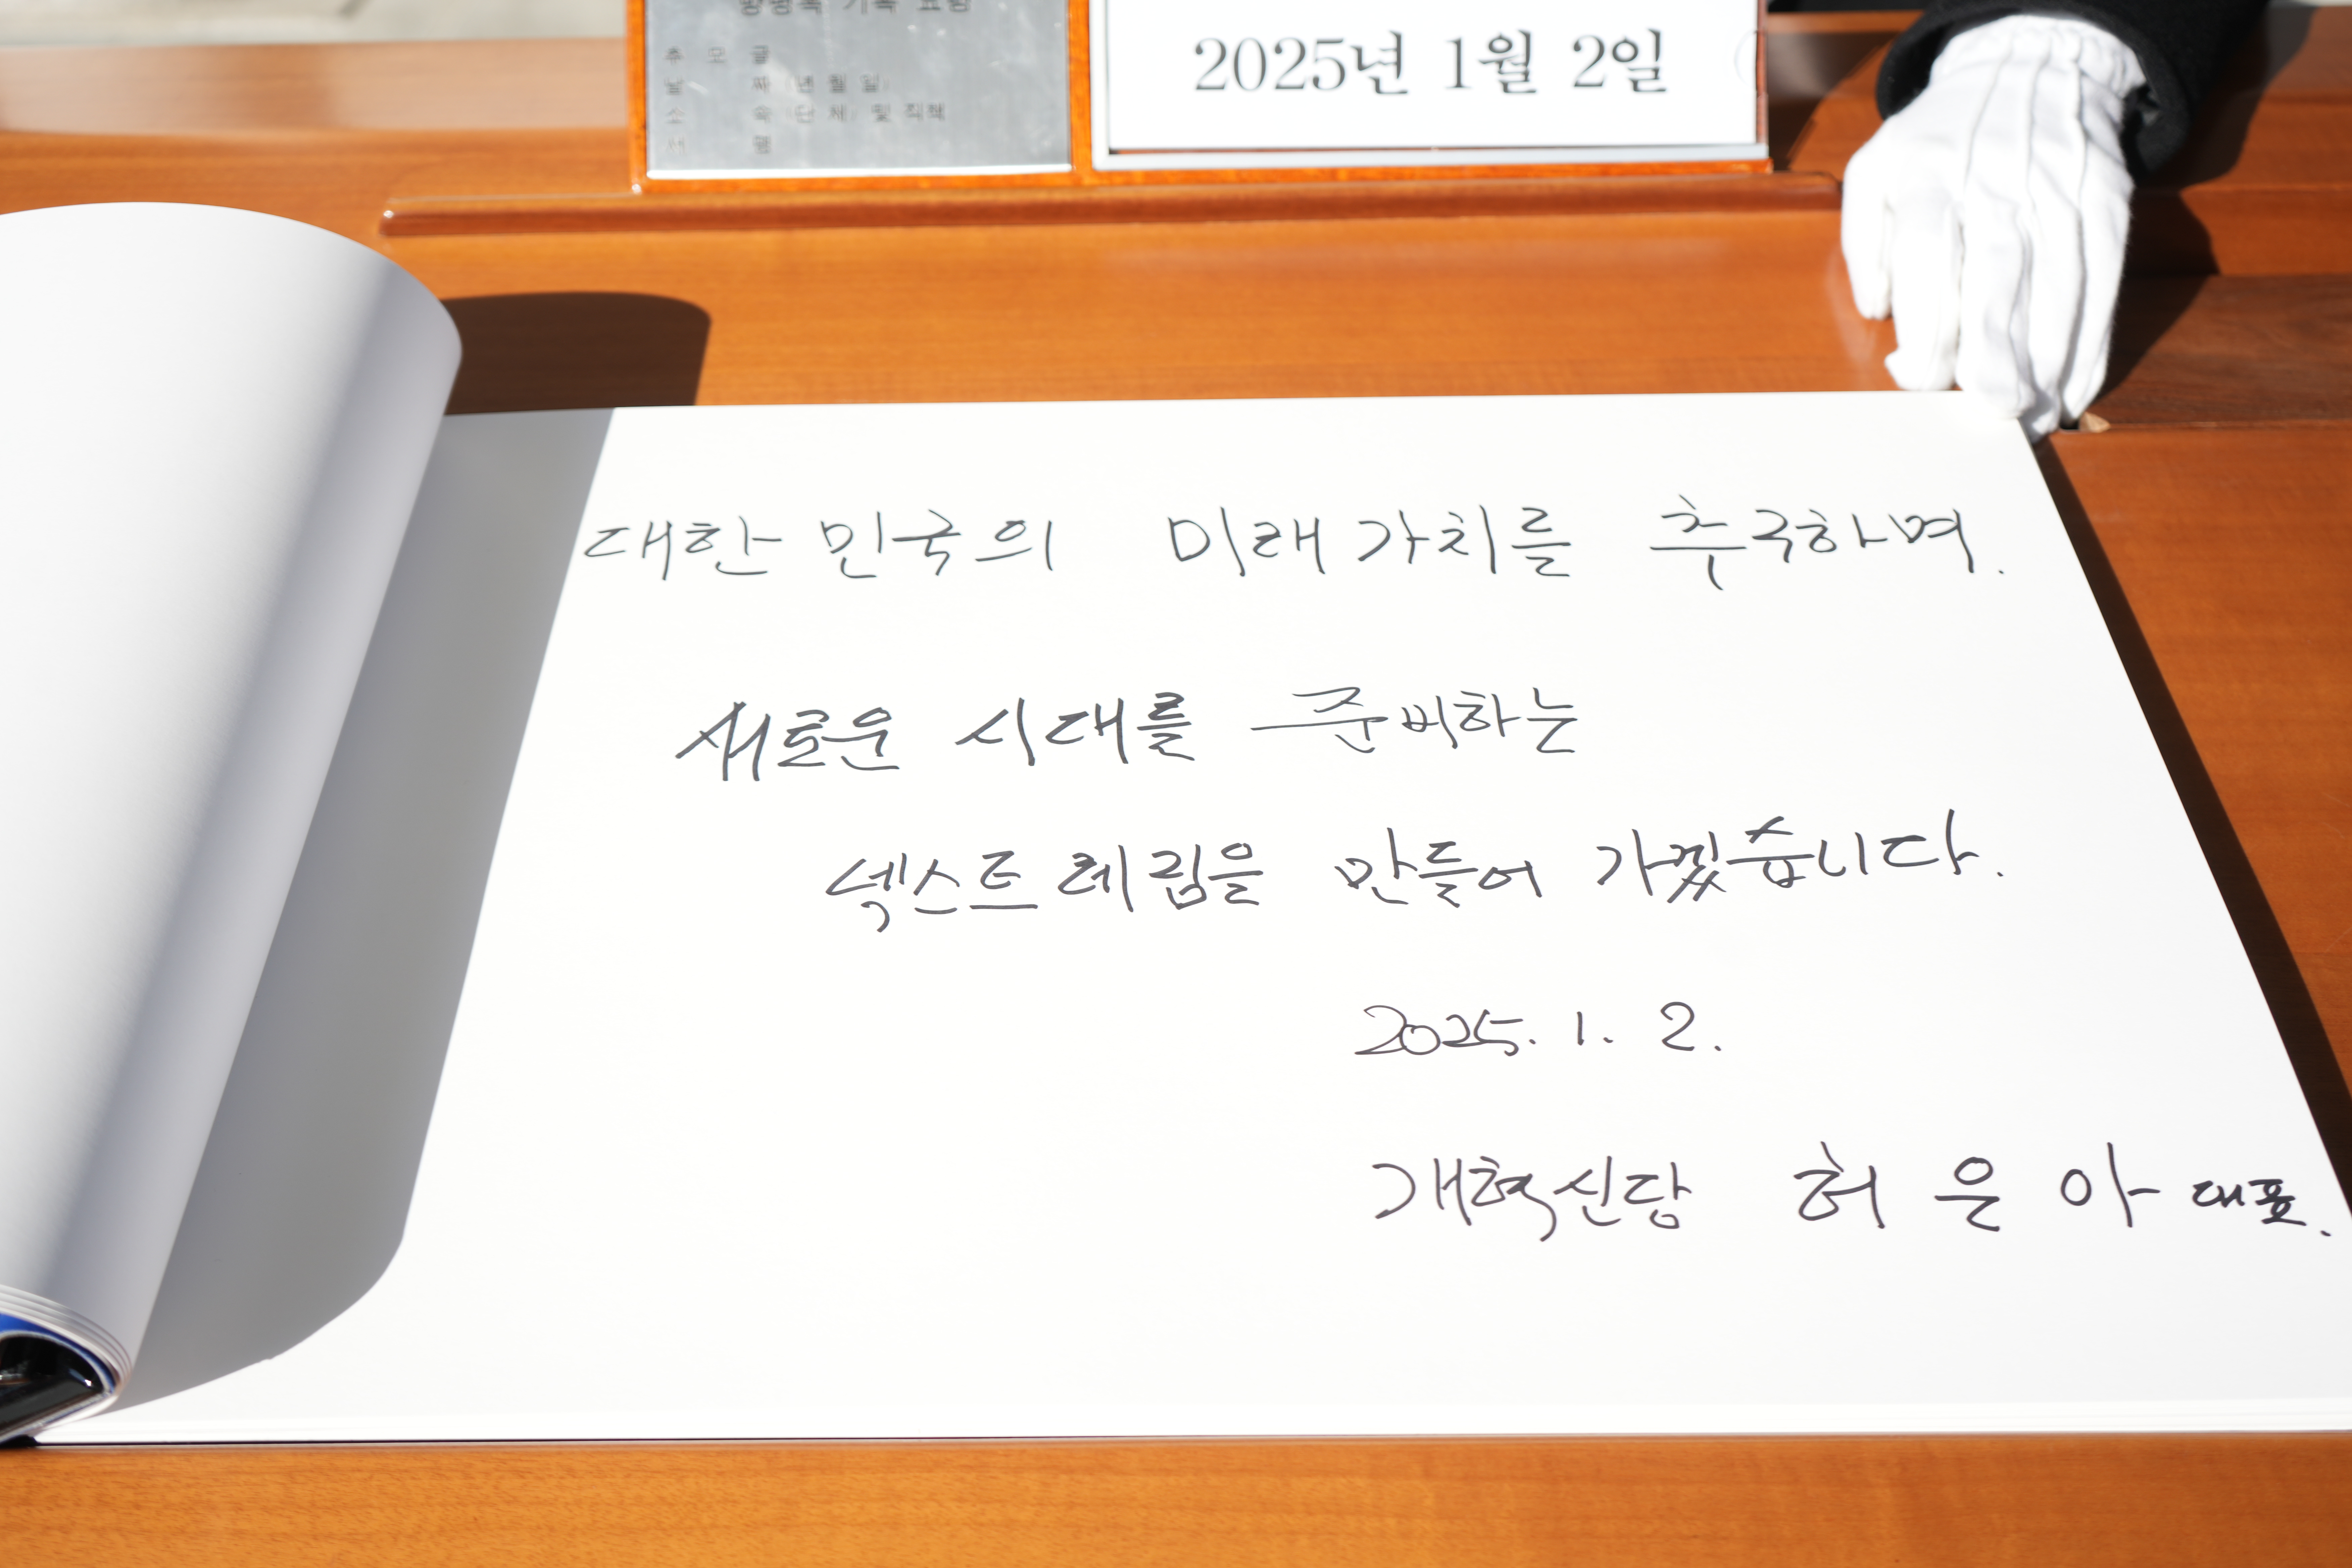 방명록 기록 요령
추 모 글
날 짜 (년 월 일)
소 속 (단 체) 및 직책
성 명
2025년 1월 2일
대한민국의 미래가치를 추구하며.
새로운 시대를 준비하는
넥스트레림을 만들어 가겠습니다.
2025. 1. 2.
개혁신당 허은아 대표.